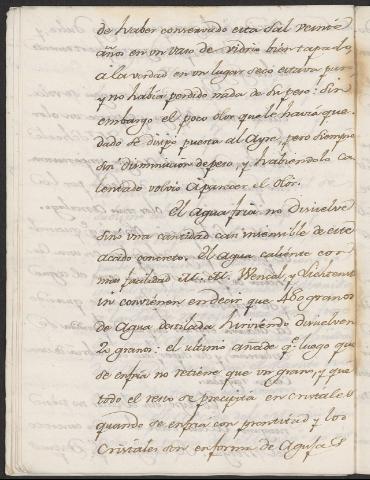 de haber conservado esta Sal veinte
años en un Vaso de Vidrio bien tapado,
a la verdad en un lugar seco estaba pura
y no habia perdido nada de su peso: Sin
embargo el poco olor que le havia que
dado se disipó puesta al Ayre, pero siempre
sin disminucion de peso, y habiendola ca
lentado volvio a parecer el olor.
El Agua fria no disuelve
sino una cantidad casi insensible de este
acido concreto. El Agua caliente con
mas facilidad M. M. Wenzel, y Lichtenst
in convienen en decir que 480 granos
de Agua destilada hirviendo disuelven
20 granos: el ultimo añade q.e luego que
se enfria no retiene que un grano, y que
todo el resto se precipita en cristales
quando se enfria con prontitud y los
Cristales son en forma de Agujas